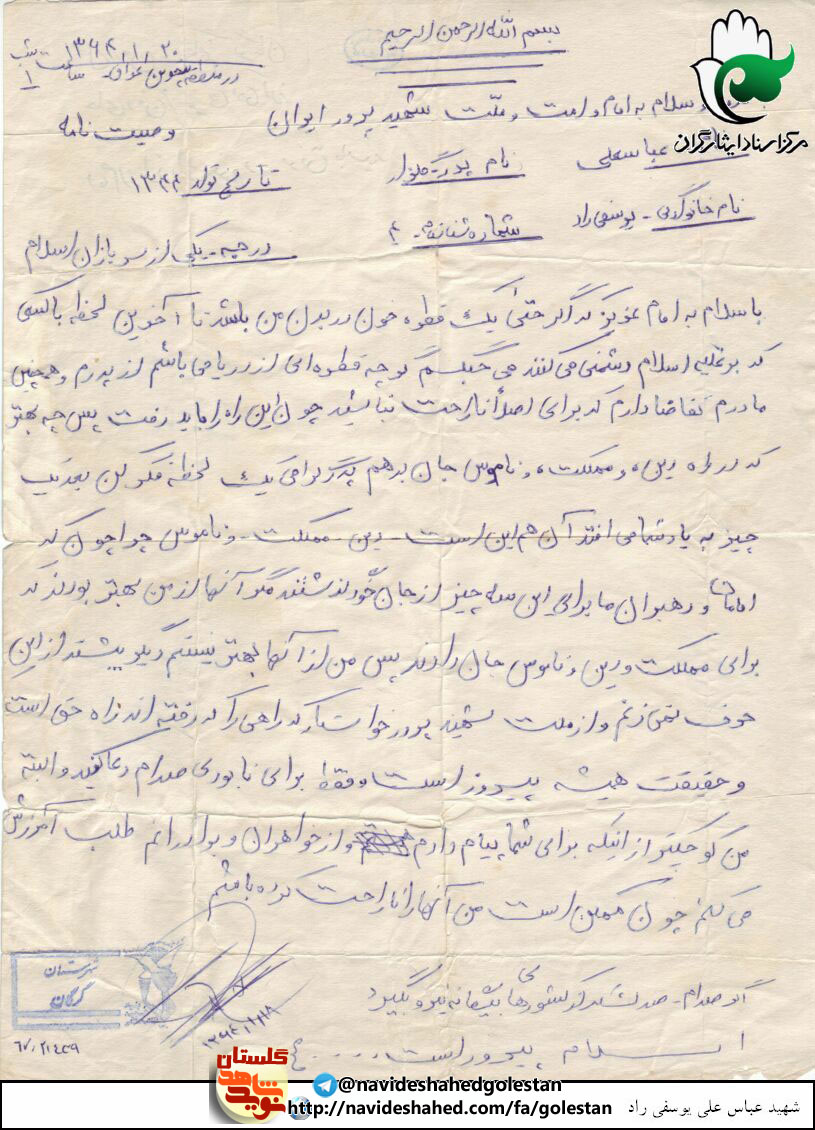 بسم الله الرحمن الرحیم
۱۳۶۴/۱/۲۰ ساعت ۱ شب
در منطقه پنجوین عراق
مرکز اسناد ایثارگران
و سلام به امام و امت و ملت شهید پرور ایران وصیت نامه
عباسعلی نام پدر تاریخ تولد ۱۳۴۴
نام خانوادگی - یوسفی راد شماره شناسنامه - ۴ درجه - یکی از سربازان اسلام
با سلام به امام عزیز که اگر حتی یک قطره خون در بدن من باشد تا آخرین لحظه با کسی
که بر علیه اسلام دشمنی می کنند می جنگم گرچه قطره ای از دریا می باشم از پدرم و همچنین
مادرم تقاضا دارم که برای اصلاً ناراحت نباشید چون این راه را باید رفت پس چه بهتر
که در راه دین و مملکت و ناموس جان بدهم پدر گرامی یک لحظه فکر کن بعد یک
چیز به یاد شما می افتد آن هم این است - دین - مملکت - و ناموس چرا چون که
امامان و رهبران ما برای این سه چیز از جان خود گذشتند مگر آنها از من بهتر بودند که
برای مملکت و دین و ناموس جان دادند پس من از آنها بهتر نیستم دیگر بیشتر از این
حرف نمی زنم و از ملت شهید پرور خواستارم که راهی را که رفته اند راه حق است
و حقیقت همیشه پیروز است و فقط برای نابودی صدام دعا کنید و البته
من کوچکتر از اینکه برای شما پیام دارم و از خواهران و برادرانم طلب آمرزش
می کنم چون ممکن است من آنها را ناراحت کرده باشم
گر صدام - صد لشکر از کشورهای بیگانه نیرو بگیرد
اسلام پیروز است ....
شهرستان
گرگان
گلستان
نوید شاهد
@navideshahedgolestan
http://navideshahed.com/fa/golestan
شهید عباس علی یوسفی راد